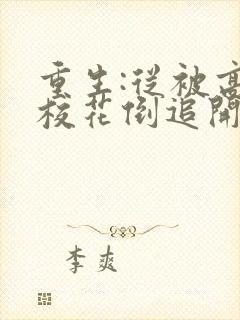 重生:從被高
校花倒追開
李爽